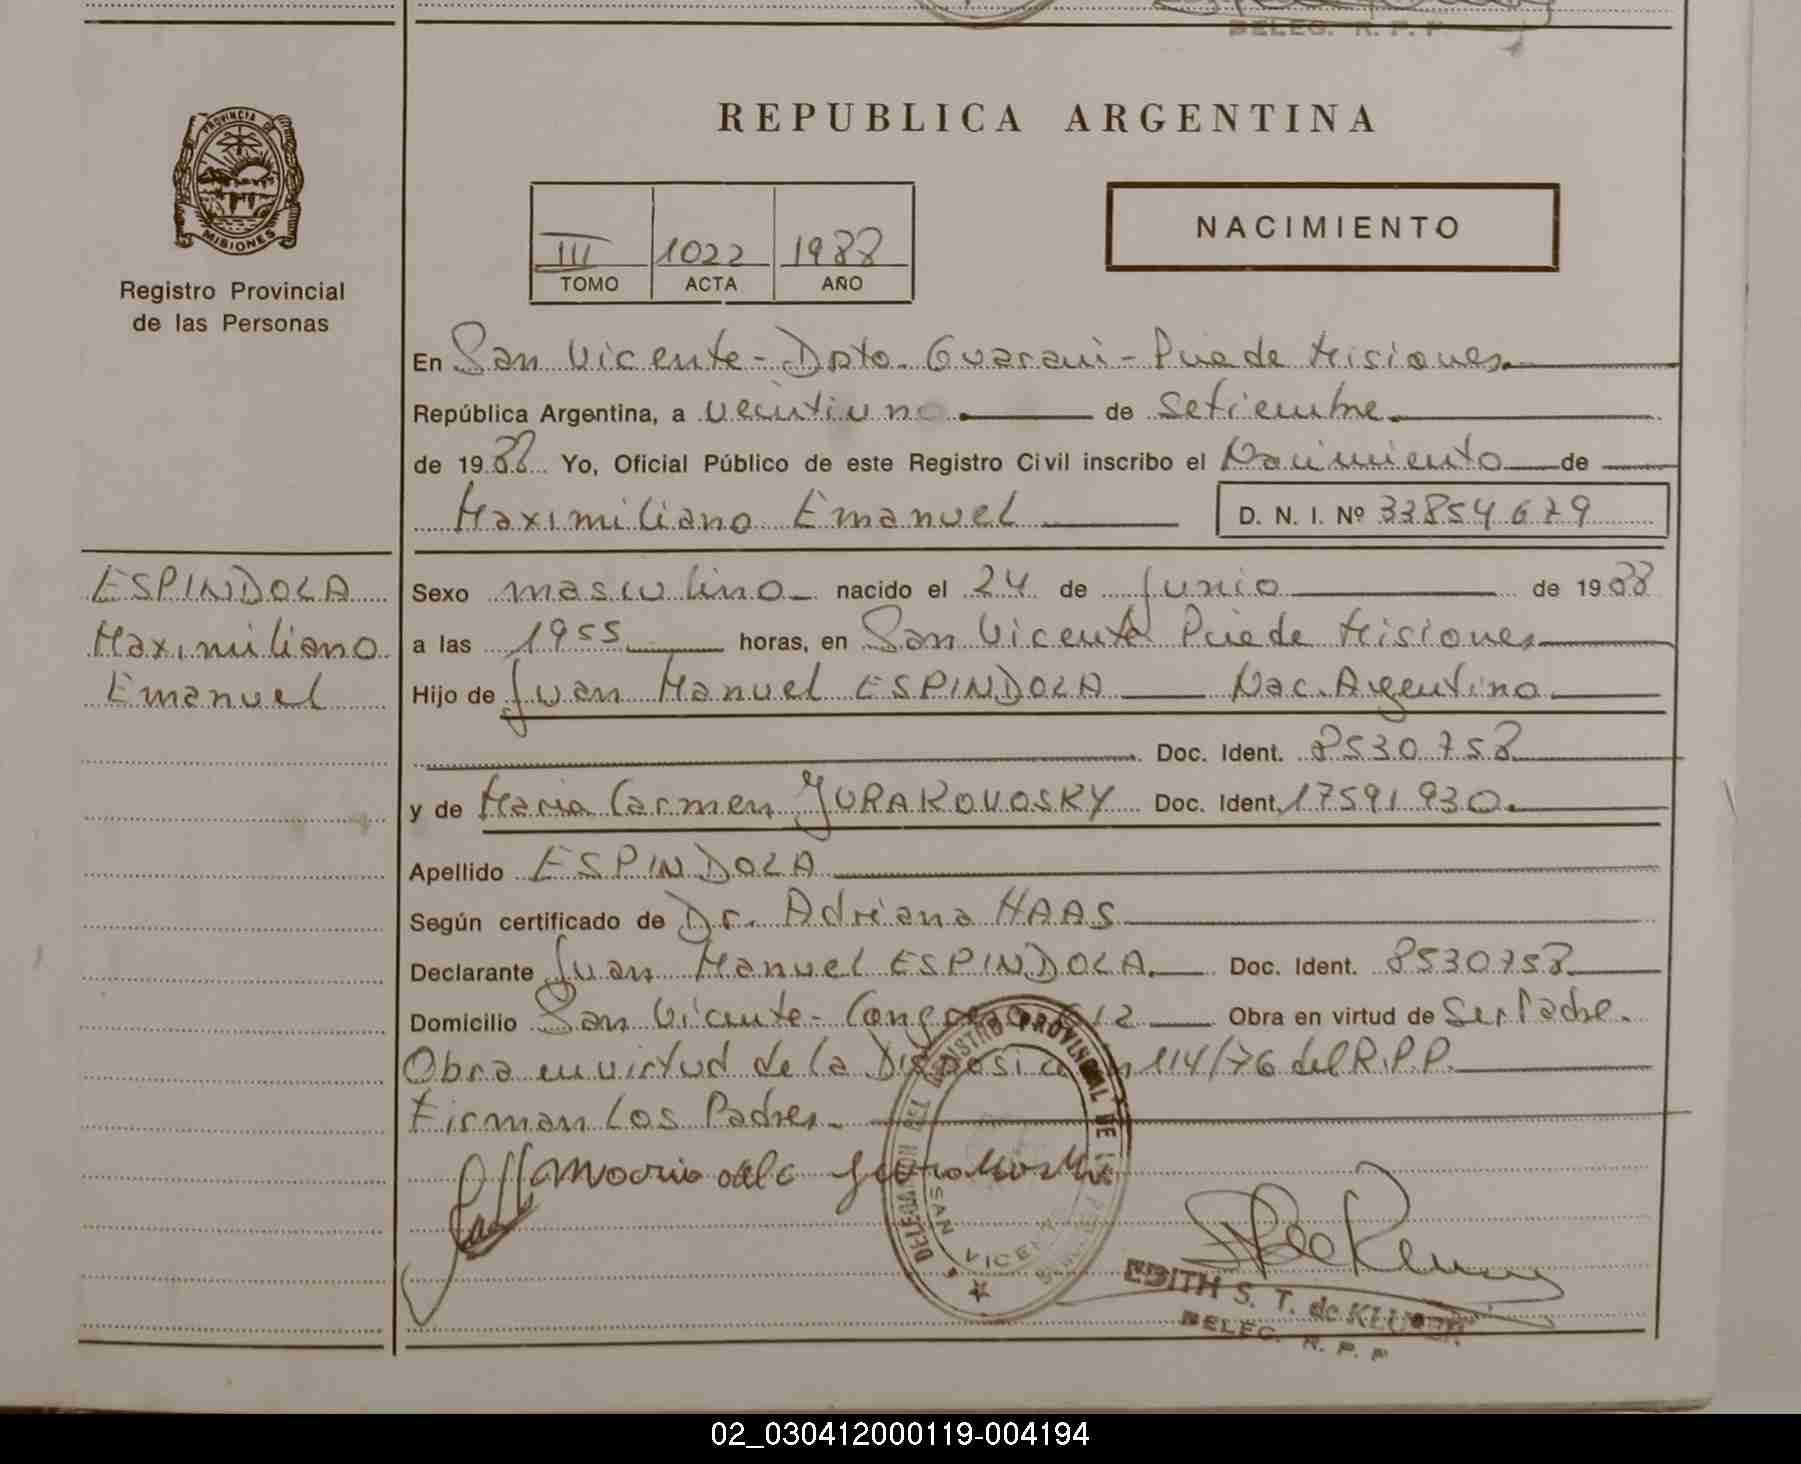 DELEG. R. P. P
PROVINCIA DE
MISIONES
Registro Provincial
de las Personas
REPUBLICA ARGENTINA
III 1022 1988
TOMO ACTA AÑO
NACIMIENTO
En San Vicente - Dpto. Guarani - Pcia de Misiones.
República Argentina, a veintiuno de Setiembre.
de 1988 Yo, Oficial Público de este Registro Civil inscribo el Nacimiento de
Maximiliano Emanuel D. N. I. Nº 33854679
ESPINDOLA
Maximiliano
Emanuel
Sexo masculino nacido el 24 de Junio de 1988
a las 1955 horas, en San Vicente Pcia de Misiones
Hijo de Juan Manuel ESPINDOLA Nac. Argentino.
Doc. Ident. 8530758
y de Maria Carmen YURAKOVOSKY Doc. Ident. 17591930.
Apellido ESPINDOLA
Según certificado de Dr. Adriana HAAS
Declarante Juan Manuel ESPINDOLA. Doc. Ident. 8530758
Domicilio San Vicente - 12 Obra en virtud de Ser Padre.
Obra en virtud de la Disposición 114/76 del R.P.P.
Firman Los Padres.
DELEGACION DEL REGISTRO PROVINCIAL DE
SAN VICENTE
EDITH S. T. de
DELEG. R. P. P
02_030412000119-004194